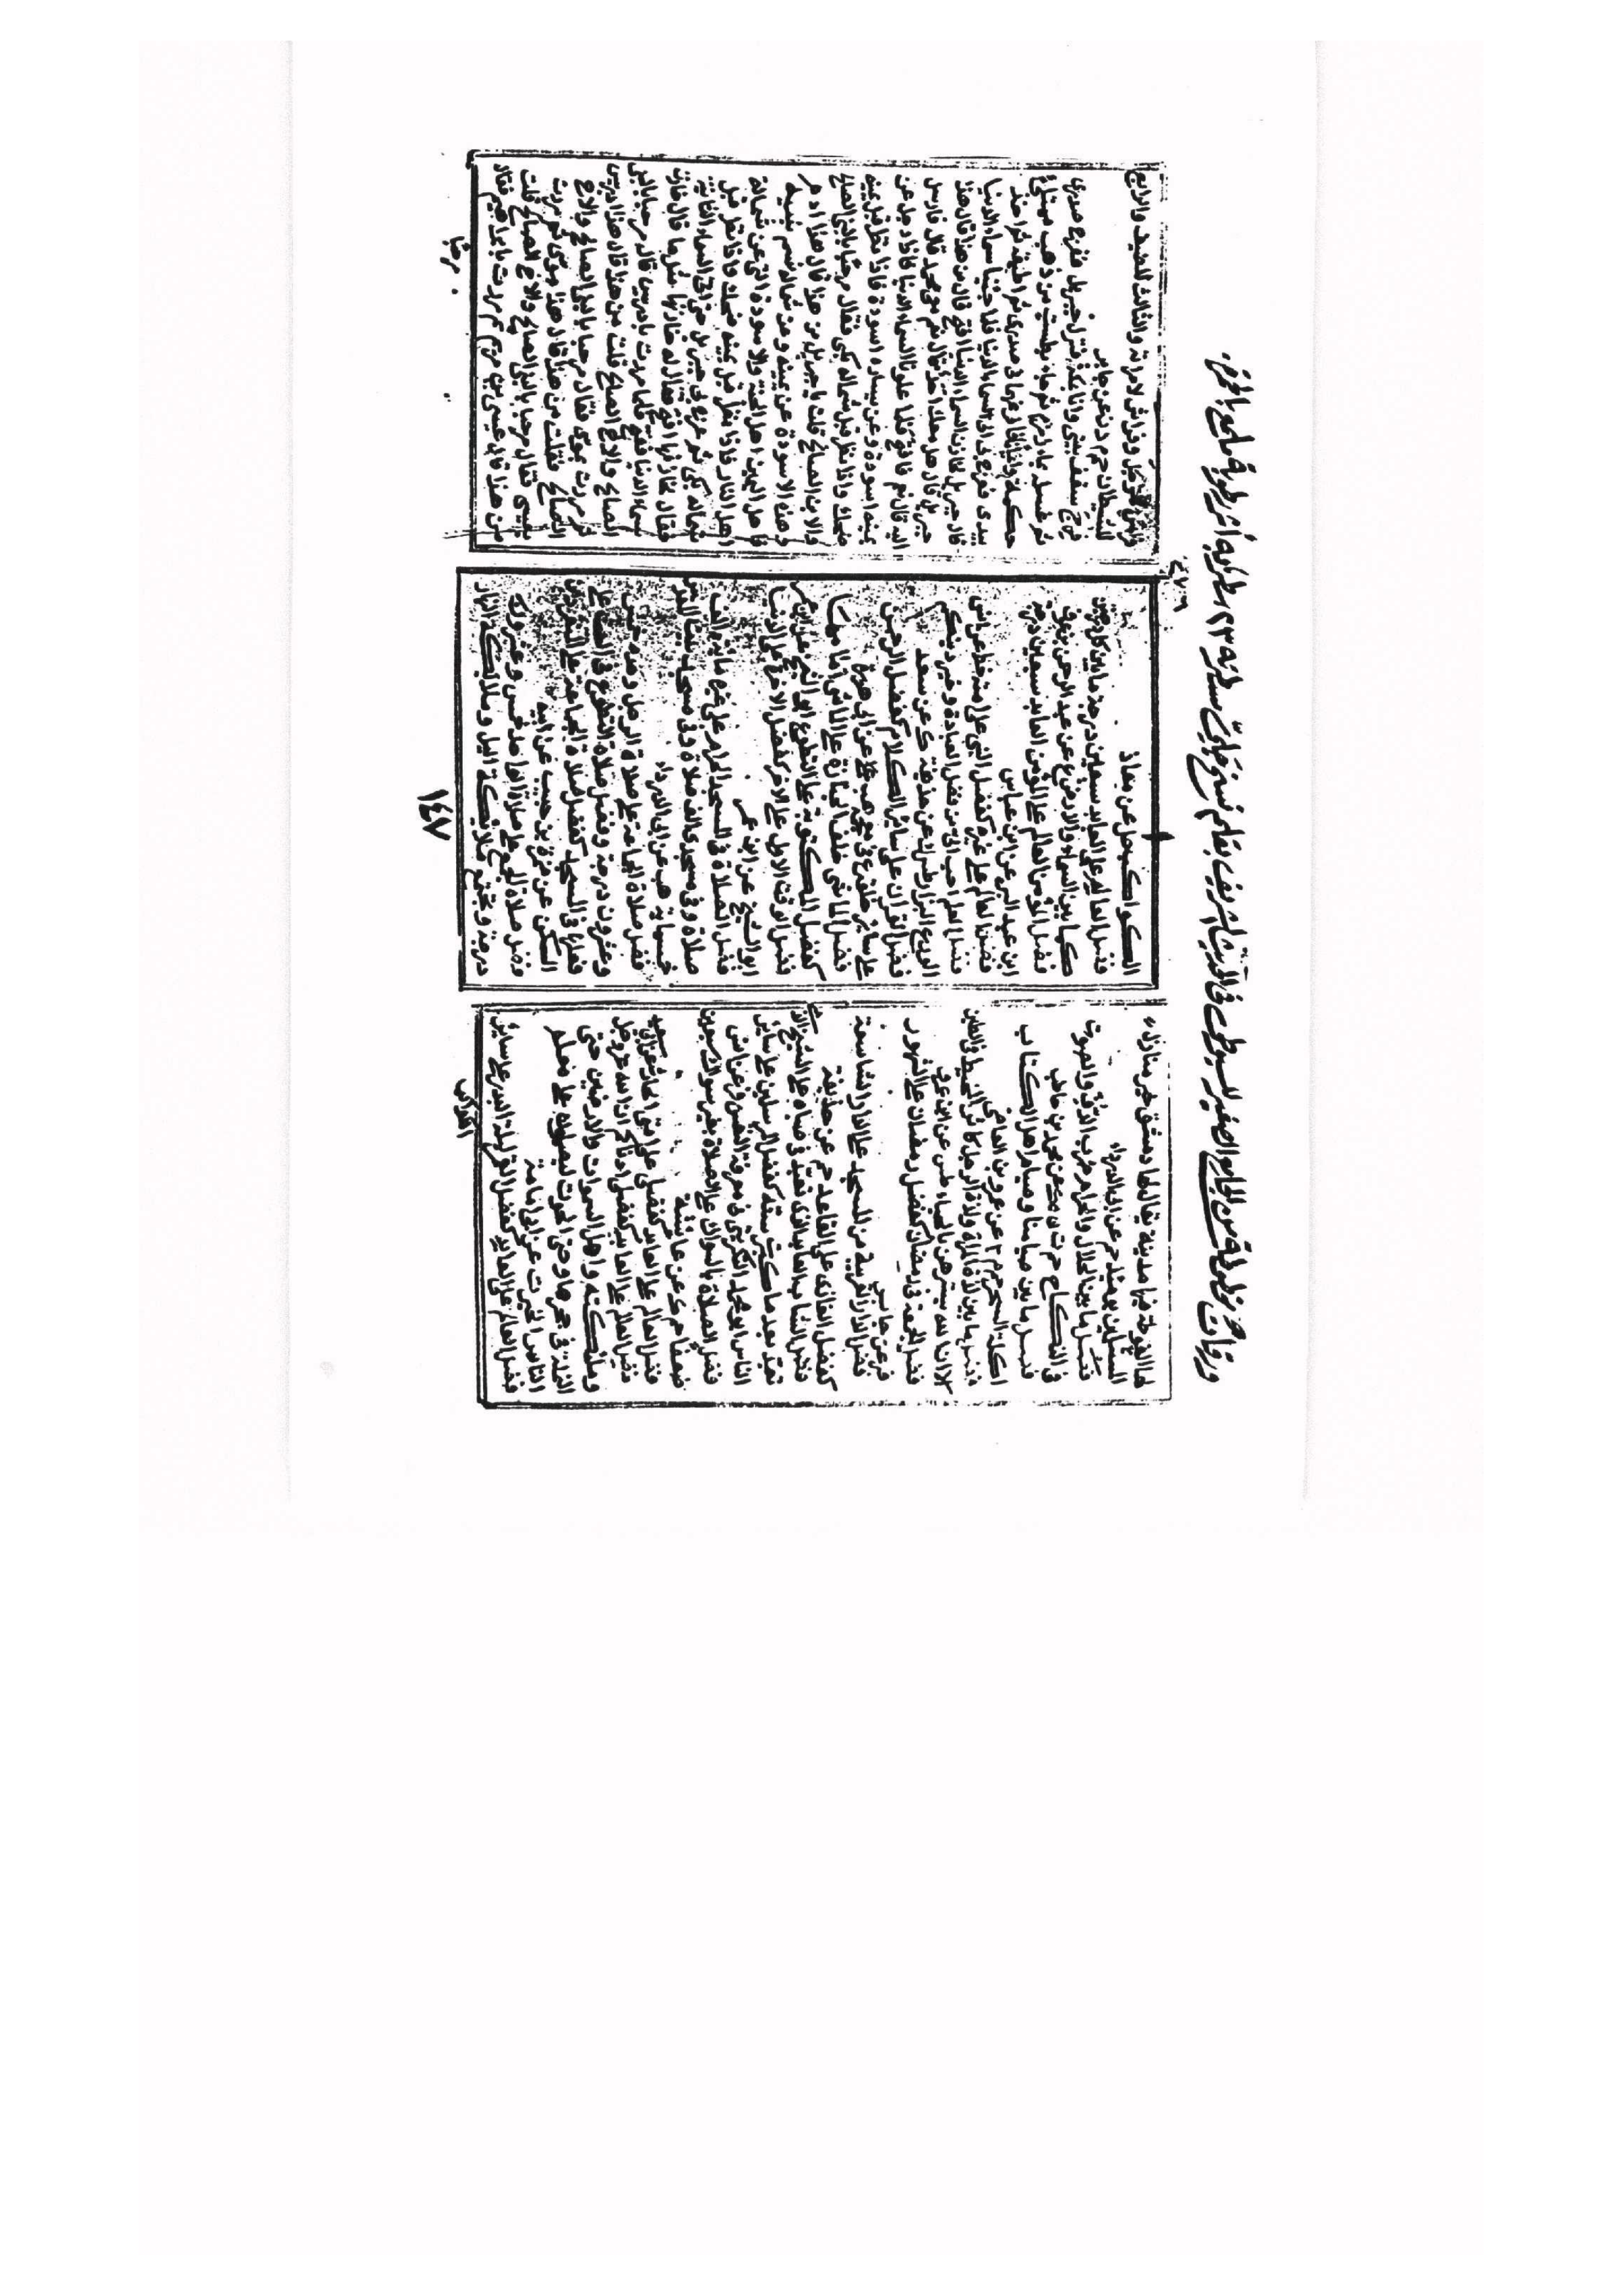 ورقات من مخطوطة من الجامع الصغير للسيوطي في الحديث الشريف بقلم نسخي مسطرته ٢٣ سطرا وبه أثر رطوبة
لها الغوطة فيها مدينة يقال لها دمشق خير منازل
المسلمين يومئذ حم عن ابى الدرداء
فصل ما بين الحلال والحرام ضرب الدف والصوت
فى النكاح حم ت ن ه ك عن محمد بن حاطب
فصل ما بين صيامنا وصيام اهل الكتاب
اكلة السحر حم م ٣ عن عمرو بن العاص
فضل ما بين لذة المرأة ولذة الرجل كاثر المخيط فى الطين
الا ان الله يسترهن بالحياء طس عن ابن عمرو
فضل الجمعة فى رمضان كفضل رمضان على الشهور
فر عن جابر
فضل الدار القريبة من المسجد على الدار الشاسعة
كفضل الغازى على القاعد حم عن حذيفة
فضل الشاب العابد الذى تعبد فى صباه على الشيخ الذى
تعبد بعد ما كبرت سنه كفضل المرسلين على سائر
الناس ابو محمد التكريتى فى معرفة النفس فر عن انس
فضل الصلاة بالسواك على الصلاة بغير سواك سبعين
ضعفا حم ك عن عائشة
فضل العالم على العابد كفضلى على امتى الحارث عن ابى سعيد
فضل العالم على العابد كفضلى على ادناكم ان الله عز وجل
وملئكته واهل السموات والارضين حتى
النملة فى جحرها وحتى الحوت ليصلون على معلم
الناس الخير ت عن ابى امامة
فضل العالم على العابد كفضل القمر ليلة البدر على سائر
الكواكب
الكواكب حل عن معاذ
فضل العالم على العابد سبعين درجة ما بين كل درجتين
كما بين السماء والارض ع عن عبد الرحمن بن عوف
فضل المؤمن العالم على المؤمن العابد سبعين درجة
ابن عبد البر عن ابن عباس
فضل العالم على غيره كفضل النبى على امته خط عن انس
فضل العلم احب الى من فضل العبادة وخير دينكم
الورع البزار طس ك عن حذيفة ك عن سعد
فضل القرآن على سائر الكلام كفضل الرحمن
على سائر خلقه ع فى معجمه هب عن ابى هريرة
فضل الماشى خلف الجنازة على الماشى امامها
كفضل المكتوبة على التطوع ابو الشيخ عن على
فضل الوقت الاول على الآخر كفضل الآخرة على الدنيا
ابو الشيخ عن ابن عمر
فضل الصلاة فى المسجد الحرام على غيره مائة الف
صلاة وفى مسجدى الف صلاة وفى مسجد بيت المقدس
خمسمائة هب عن ابى الدرداء
فضل صلاة الجماعة على صلاة الرجل وحده خمس
وعشرون درجة وفضل صلاة التطوع فى البيت على
فعلها فى المسجد كفضل صلاة الجماعة على المنفرد ابن
السكن عن ضمرة بن حبيب عن ابيه
فضل صلاة الجمع على صلاة الواحد خمس وعشرون
درجة وتجتمع ملائكة الليل وملائكة النهار
١٤٧
وفراش للرجل وفراش لامراته والثالث للضيف والرابع
للشيطان حم م د ن عن جابر
فرج سقف بيتى وانا بمكة فنزل جبريل ففرج صدرى
ثم غسله بماء زمزم ثم جاء بطست من ذهب ممتلئ
حكمة وايمانا فافرغها فى صدرى ثم اطبقه ثم اخذ
بيدى فعرج بى الى السماء الدنيا فلما جئنا سماء الدنيا
قال جبريل لخازن السماء الدنيا افتح قال من هذا قال هذا
جبريل قال هل معك احد قال نعم معى محمد قال فارسل
اليه قال نعم فافتح فلما علونا السماء الدنيا فاذا رجل عن
يمينه اسودة وعن يساره اسودة فاذا نظر قبل يمينه
ضحك واذا نظر قبل شماله بكى فقال مرحبا بالنبى الصالح
والابن الصالح قلت يا جبريل من هذا قال هذا ادم
وهذه الاسودة عن يمينه وعن شماله نسم بنيه
فاهل اليمين اهل الجنة والاسودة التى عن شماله
اهل النار فاذا نظر قبل يمينه ضحك واذا نظر قبل
شماله بكى ثم عرج بى جبريل حتى اتى السماء الثانية
فقال لخازنها افتح فقال له خازنها مثل ما قال خازن
سماء الدنيا ففتح فلما مررت بادريس قال مرحبا بالنبى
الصالح والاخ الصالح قلت من هذا قال هذا ادريس
ثم مررت بموسى فقال مرحبا بالنبى الصالح والاخ
الصالح فقلت من هذا قال هذا موسى ثم مررت
بعيسى فقال مرحبا بالنبى الصالح والاخ الصالح قلت
من هذا قال عيسى بن مريم ثم مررت بابراهيم فقال
مرحبا